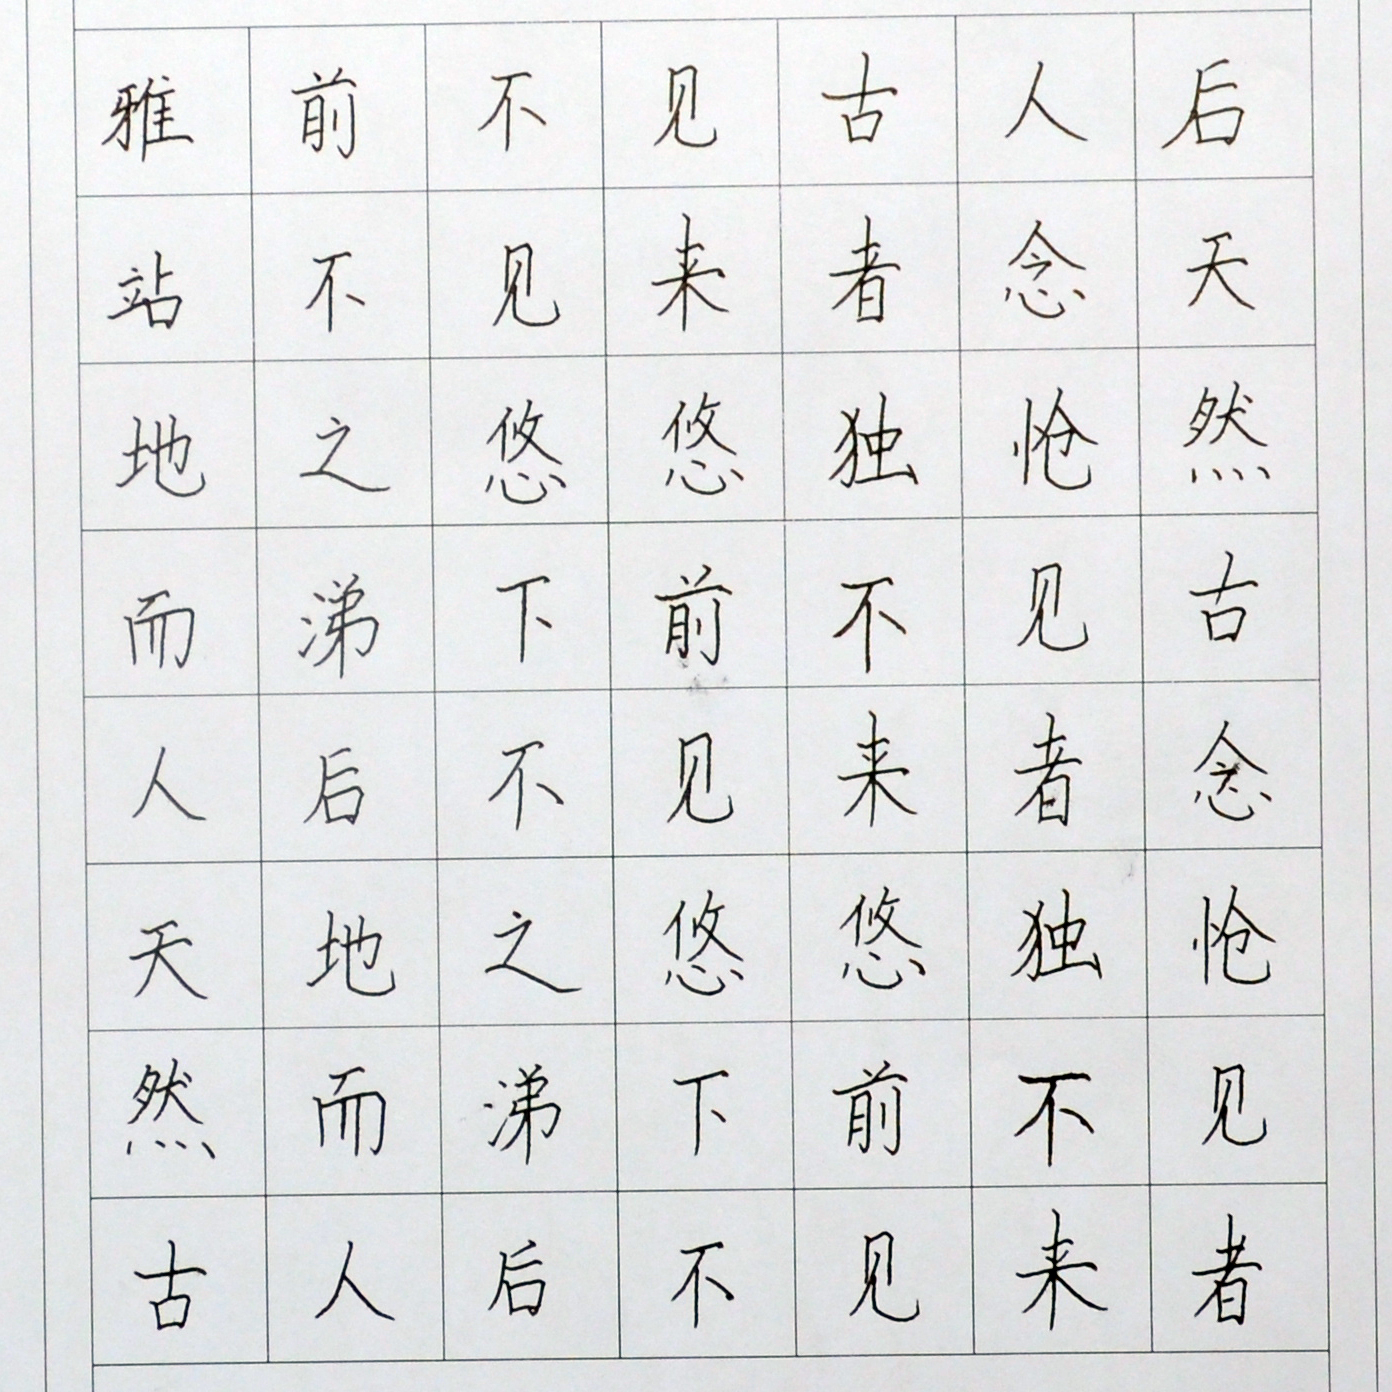 雅前不见古人后
站不见来者念天
地之悠悠独怆然
而涕下前不见古
人后不见来者念
天地之悠悠独怆
然而涕下前不见
古人后不见来者